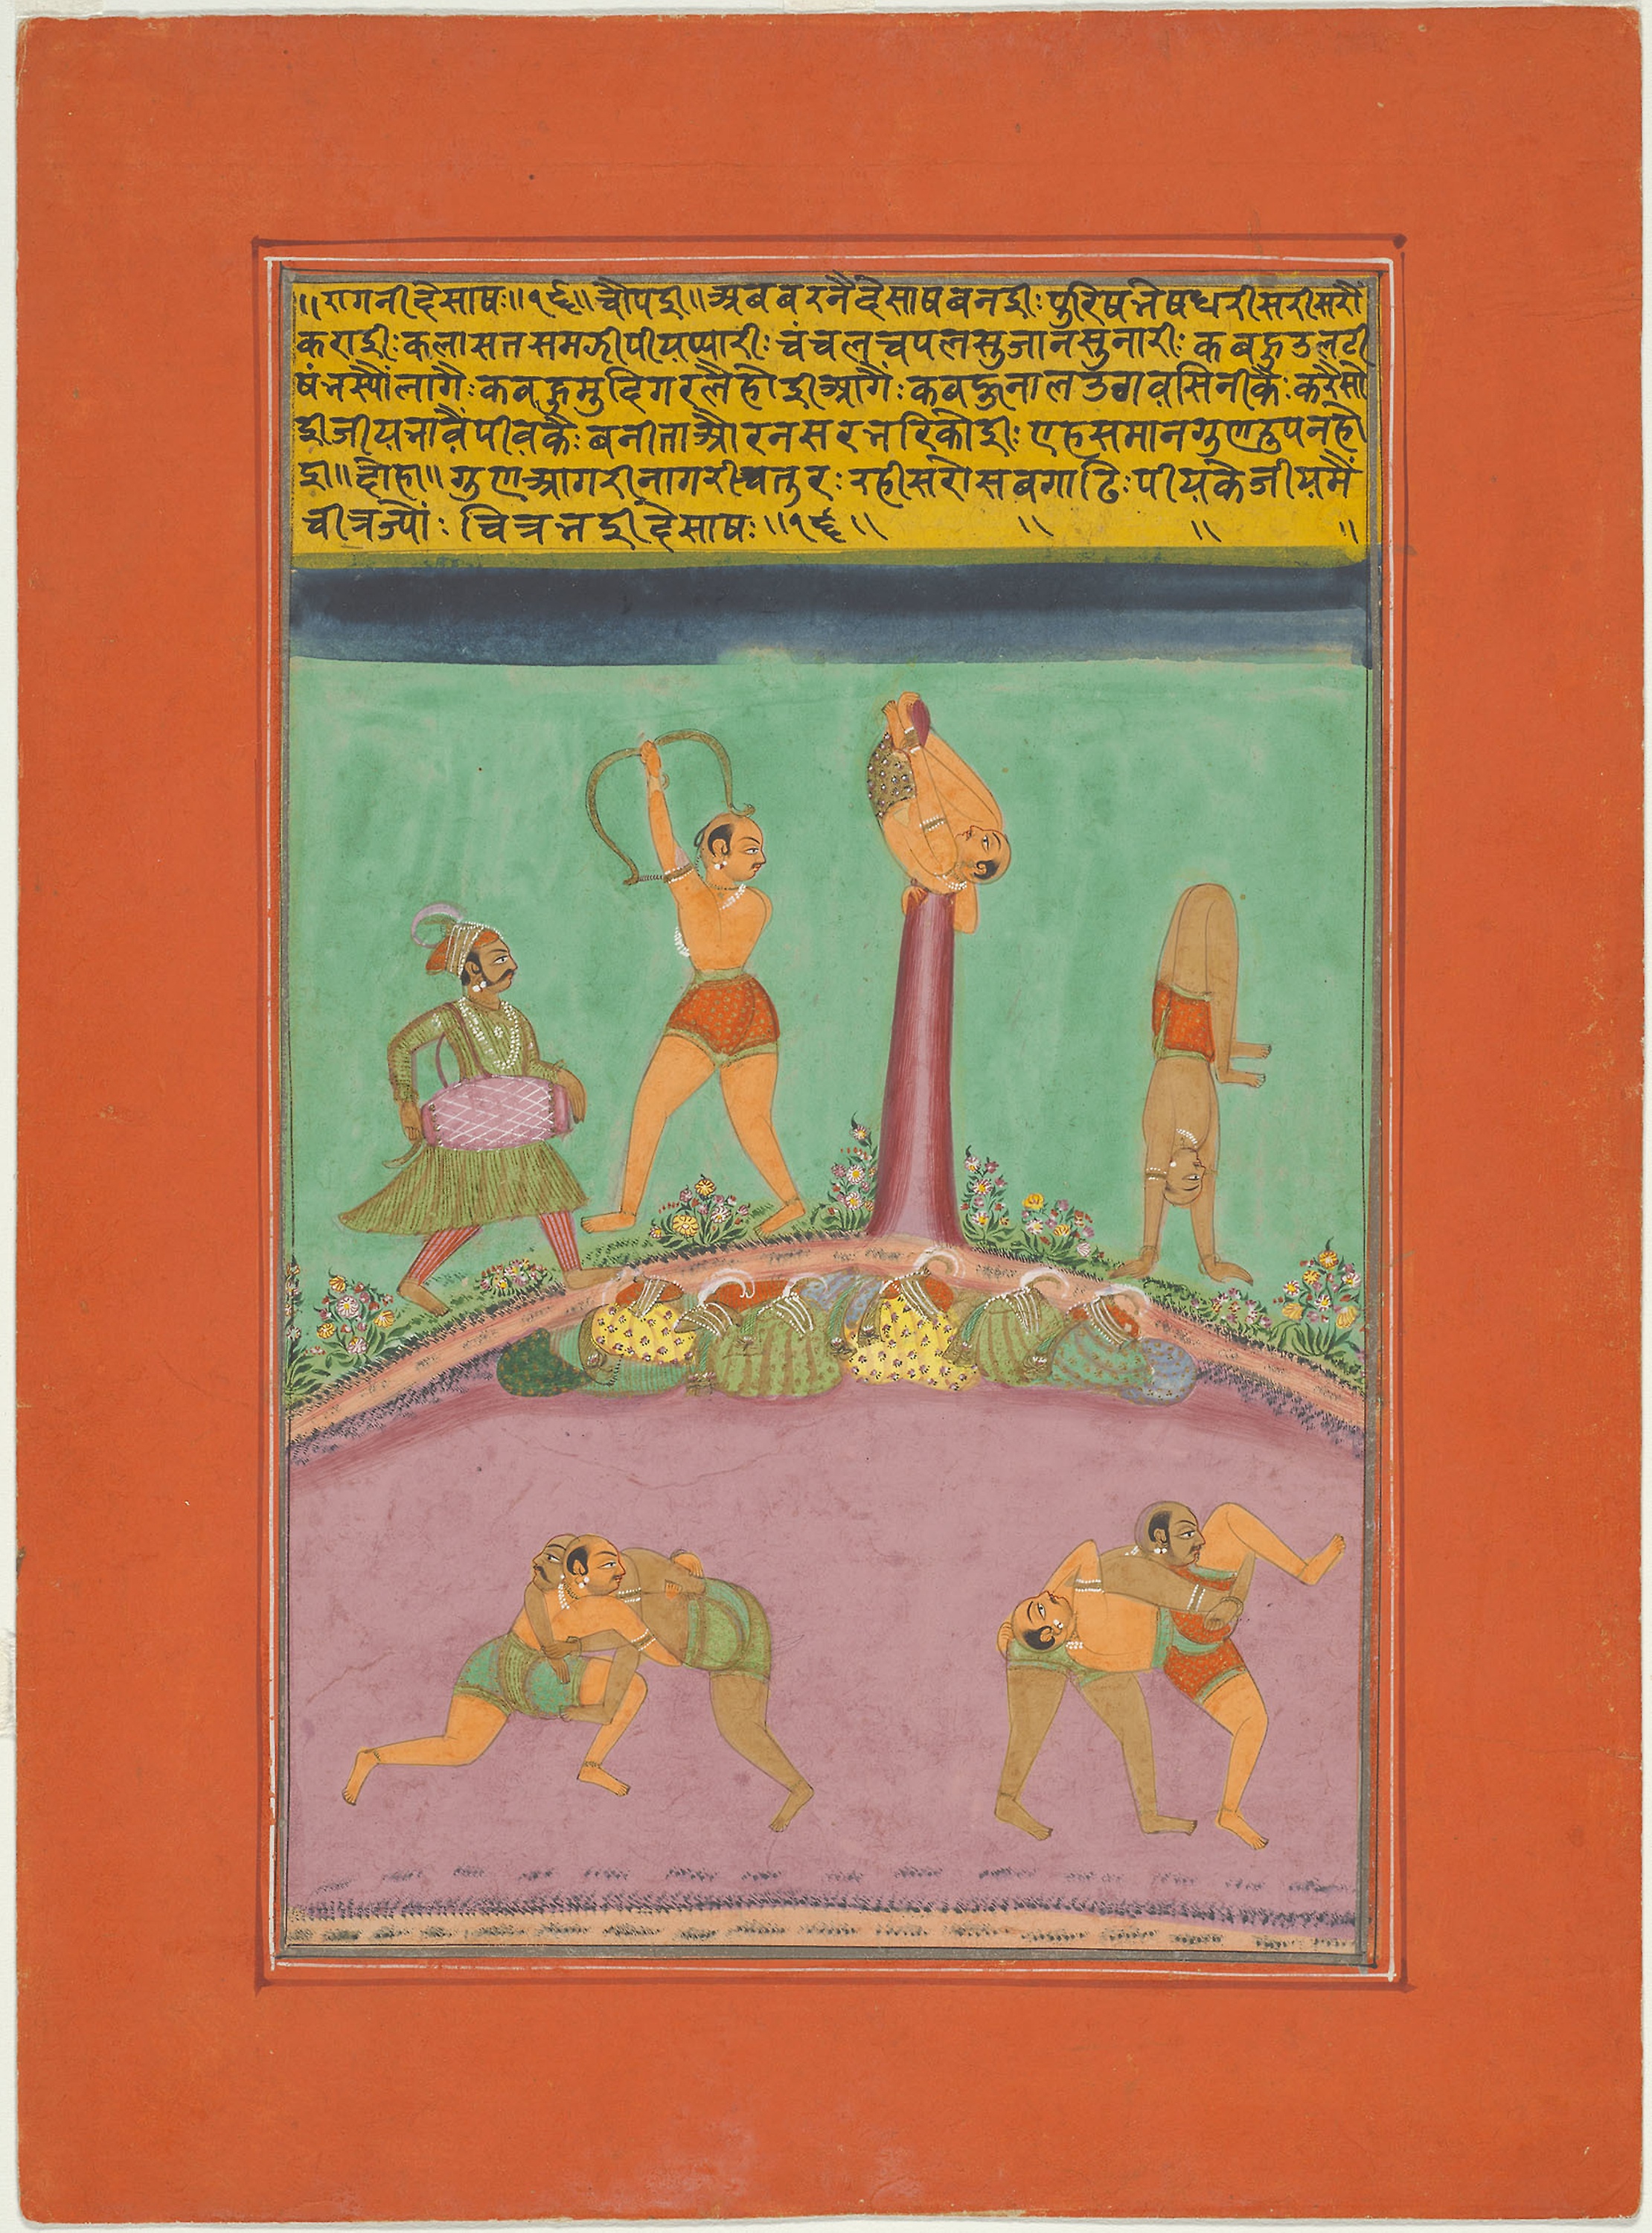 ॥रागनी दैसाष॥१६॥ चौपई॥ अब बरनै दैसाष बनाई: पुरिष भेष धरी सरी सरौ
कराई: कला सत समझी पीय प्यारी: चंचल चपल सुजान सुनारी: कबहु उलटी
षंभ स्यौं लागै: कबहु मुदिगर लै होई आगै: कबहु नाल उठाव सिनीकै: करै सो
ई जीय भावै पीवकै: बनीता औरन सर भरि कोई: एह समान गुण रुप न हो
ई॥ दोहा॥ गुण आगरी नागरी चतुर: रही सरोस बगाढि: पीयकै जीयमै
चीत्र ज्यौं: चित्र भई दैसाष:॥१६॥ ॥ ॥ ॥